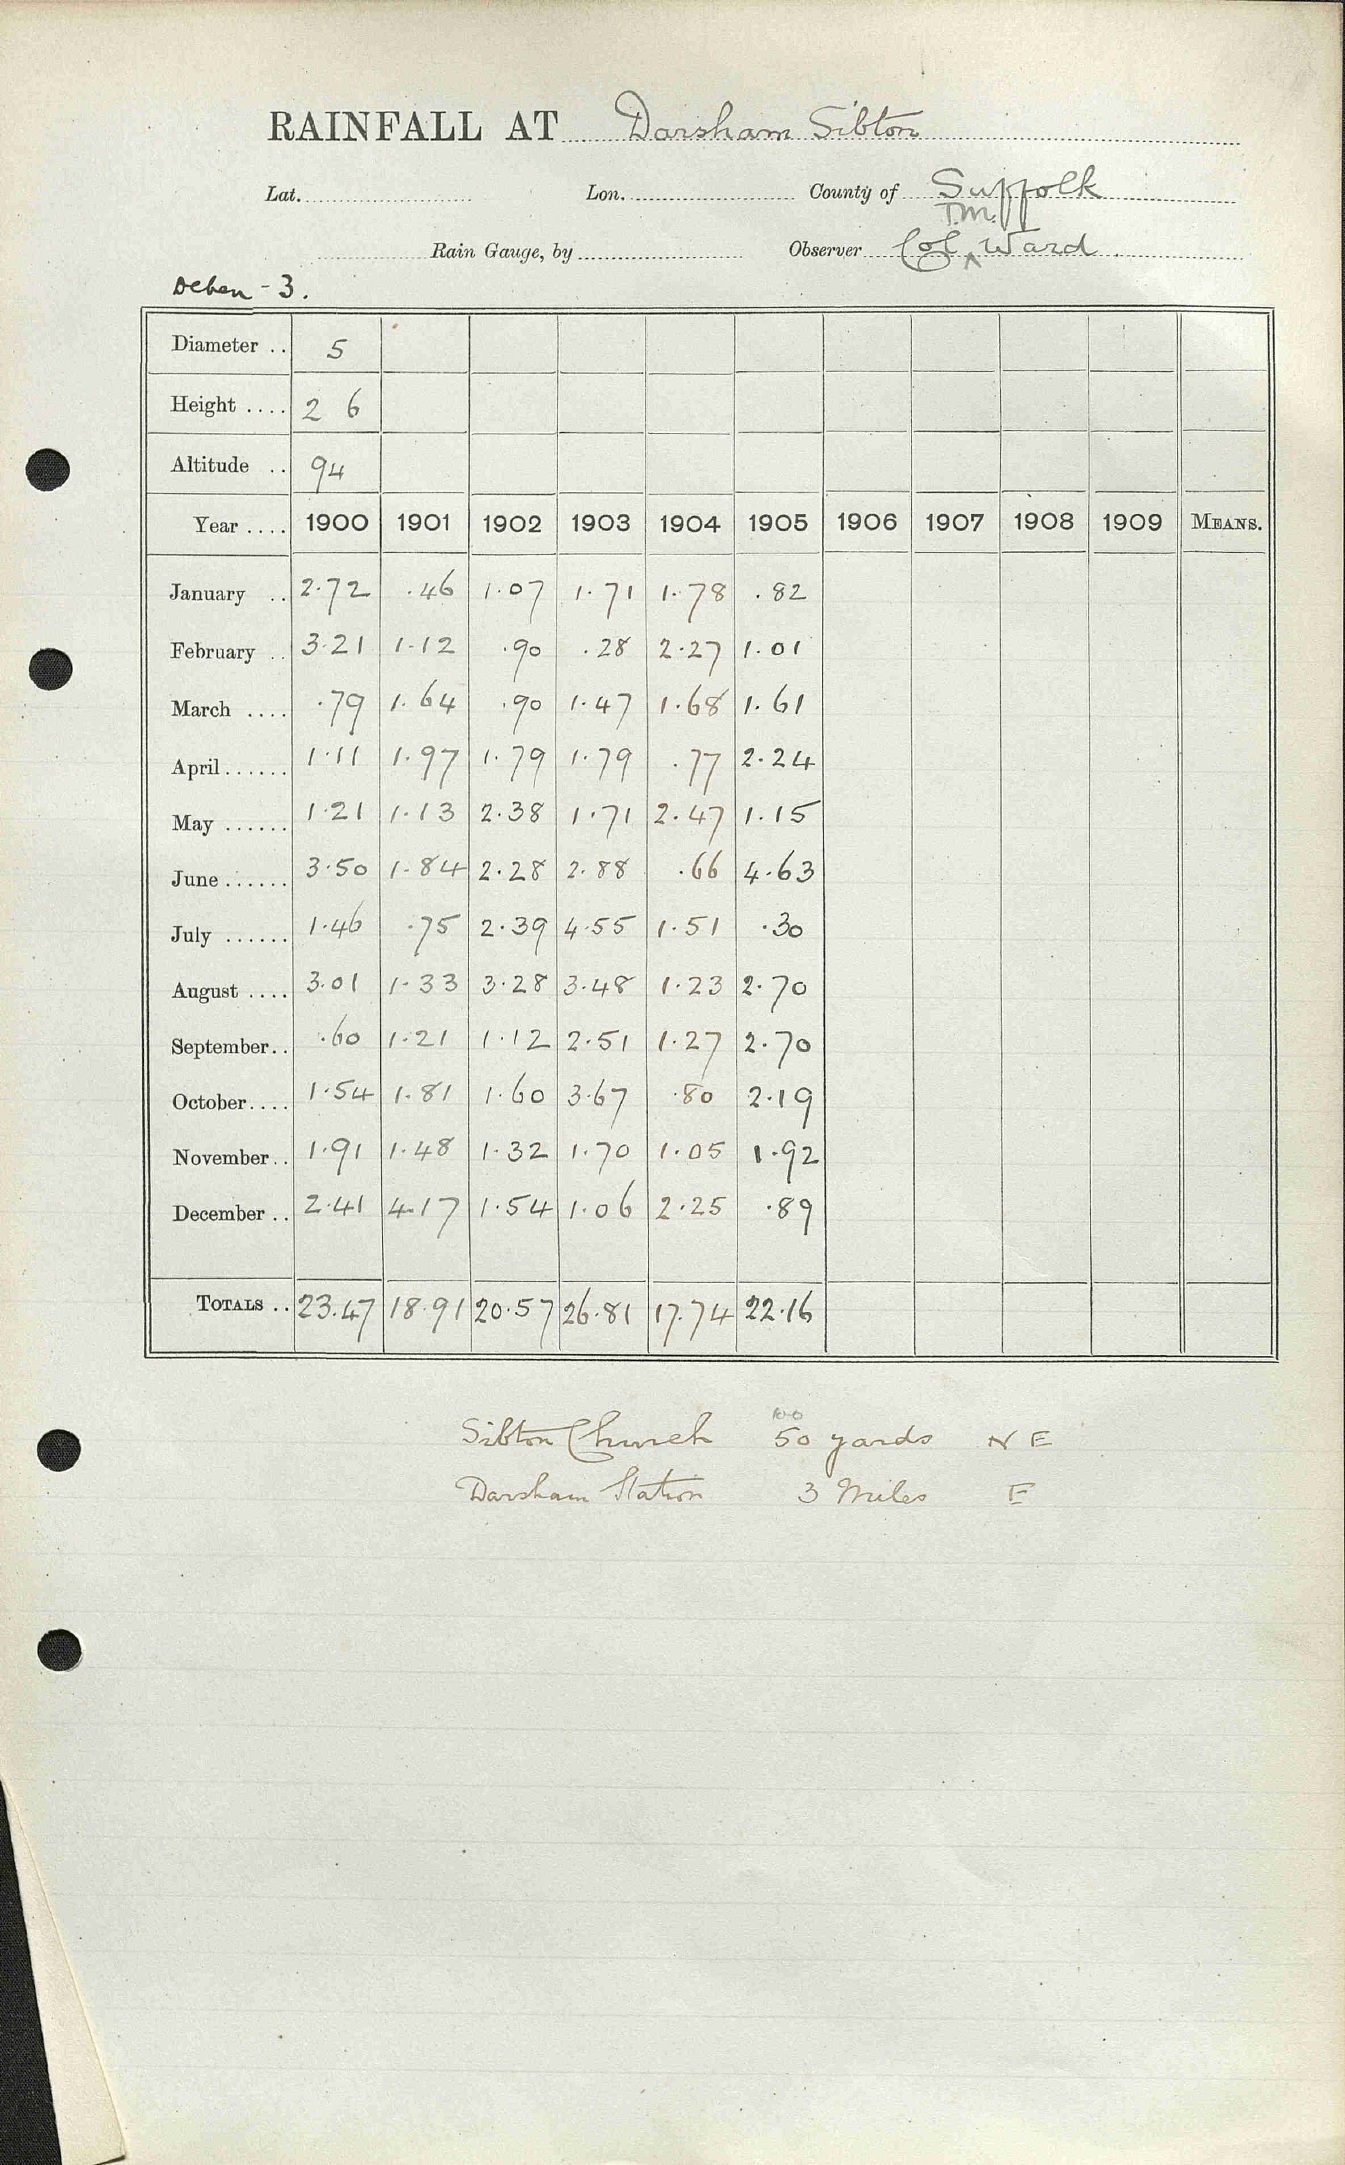 RAINFALL AT Darsham Sibton
Lat. Lon. County of Suffolk
T.M.
Rain Gauge, by Observer Col ^ Ward
Deben - 3.
Diameter .. 5
Height .... 2 6
Altitude .. 94
Year .... 1900 1901 1902 1903 1904 1905 1906 1907 1908 1909 MEANS.
January .. 2.72 .46 1.07 1.71 1.78 .82
February .. 3.21 1.12 .90 .28 2.27 1.01
March .... .79 1.64 .90 1.47 1.68 1.61
April...... 1.11 1.97 1.79 1.79 .77 2.24
May ...... 1.21 1.13 2.38 1.71 2.47 1.15
June ...... 3.50 1.84 2.28 2.88 .66 4.63
July ...... 1.46 .75 2.39 4.55 1.51 .30
August .... 3.01 1.33 3.28 3.48 1.23 2.70
September.. .60 1.21 1.12 2.51 1.27 2.70
October.... 1.54 1.81 1.60 3.67 .80 2.19
November.. 1.91 1.48 1.32 1.70 1.05 1.92
December .. 2.41 4.17 1.54 1.06 2.25 .89
TOTALS .. 23.47 18.91 20.57 26.81 17.74 22.16
100
Sibton Church 50 yards N E
Darsham Station 3 Miles E